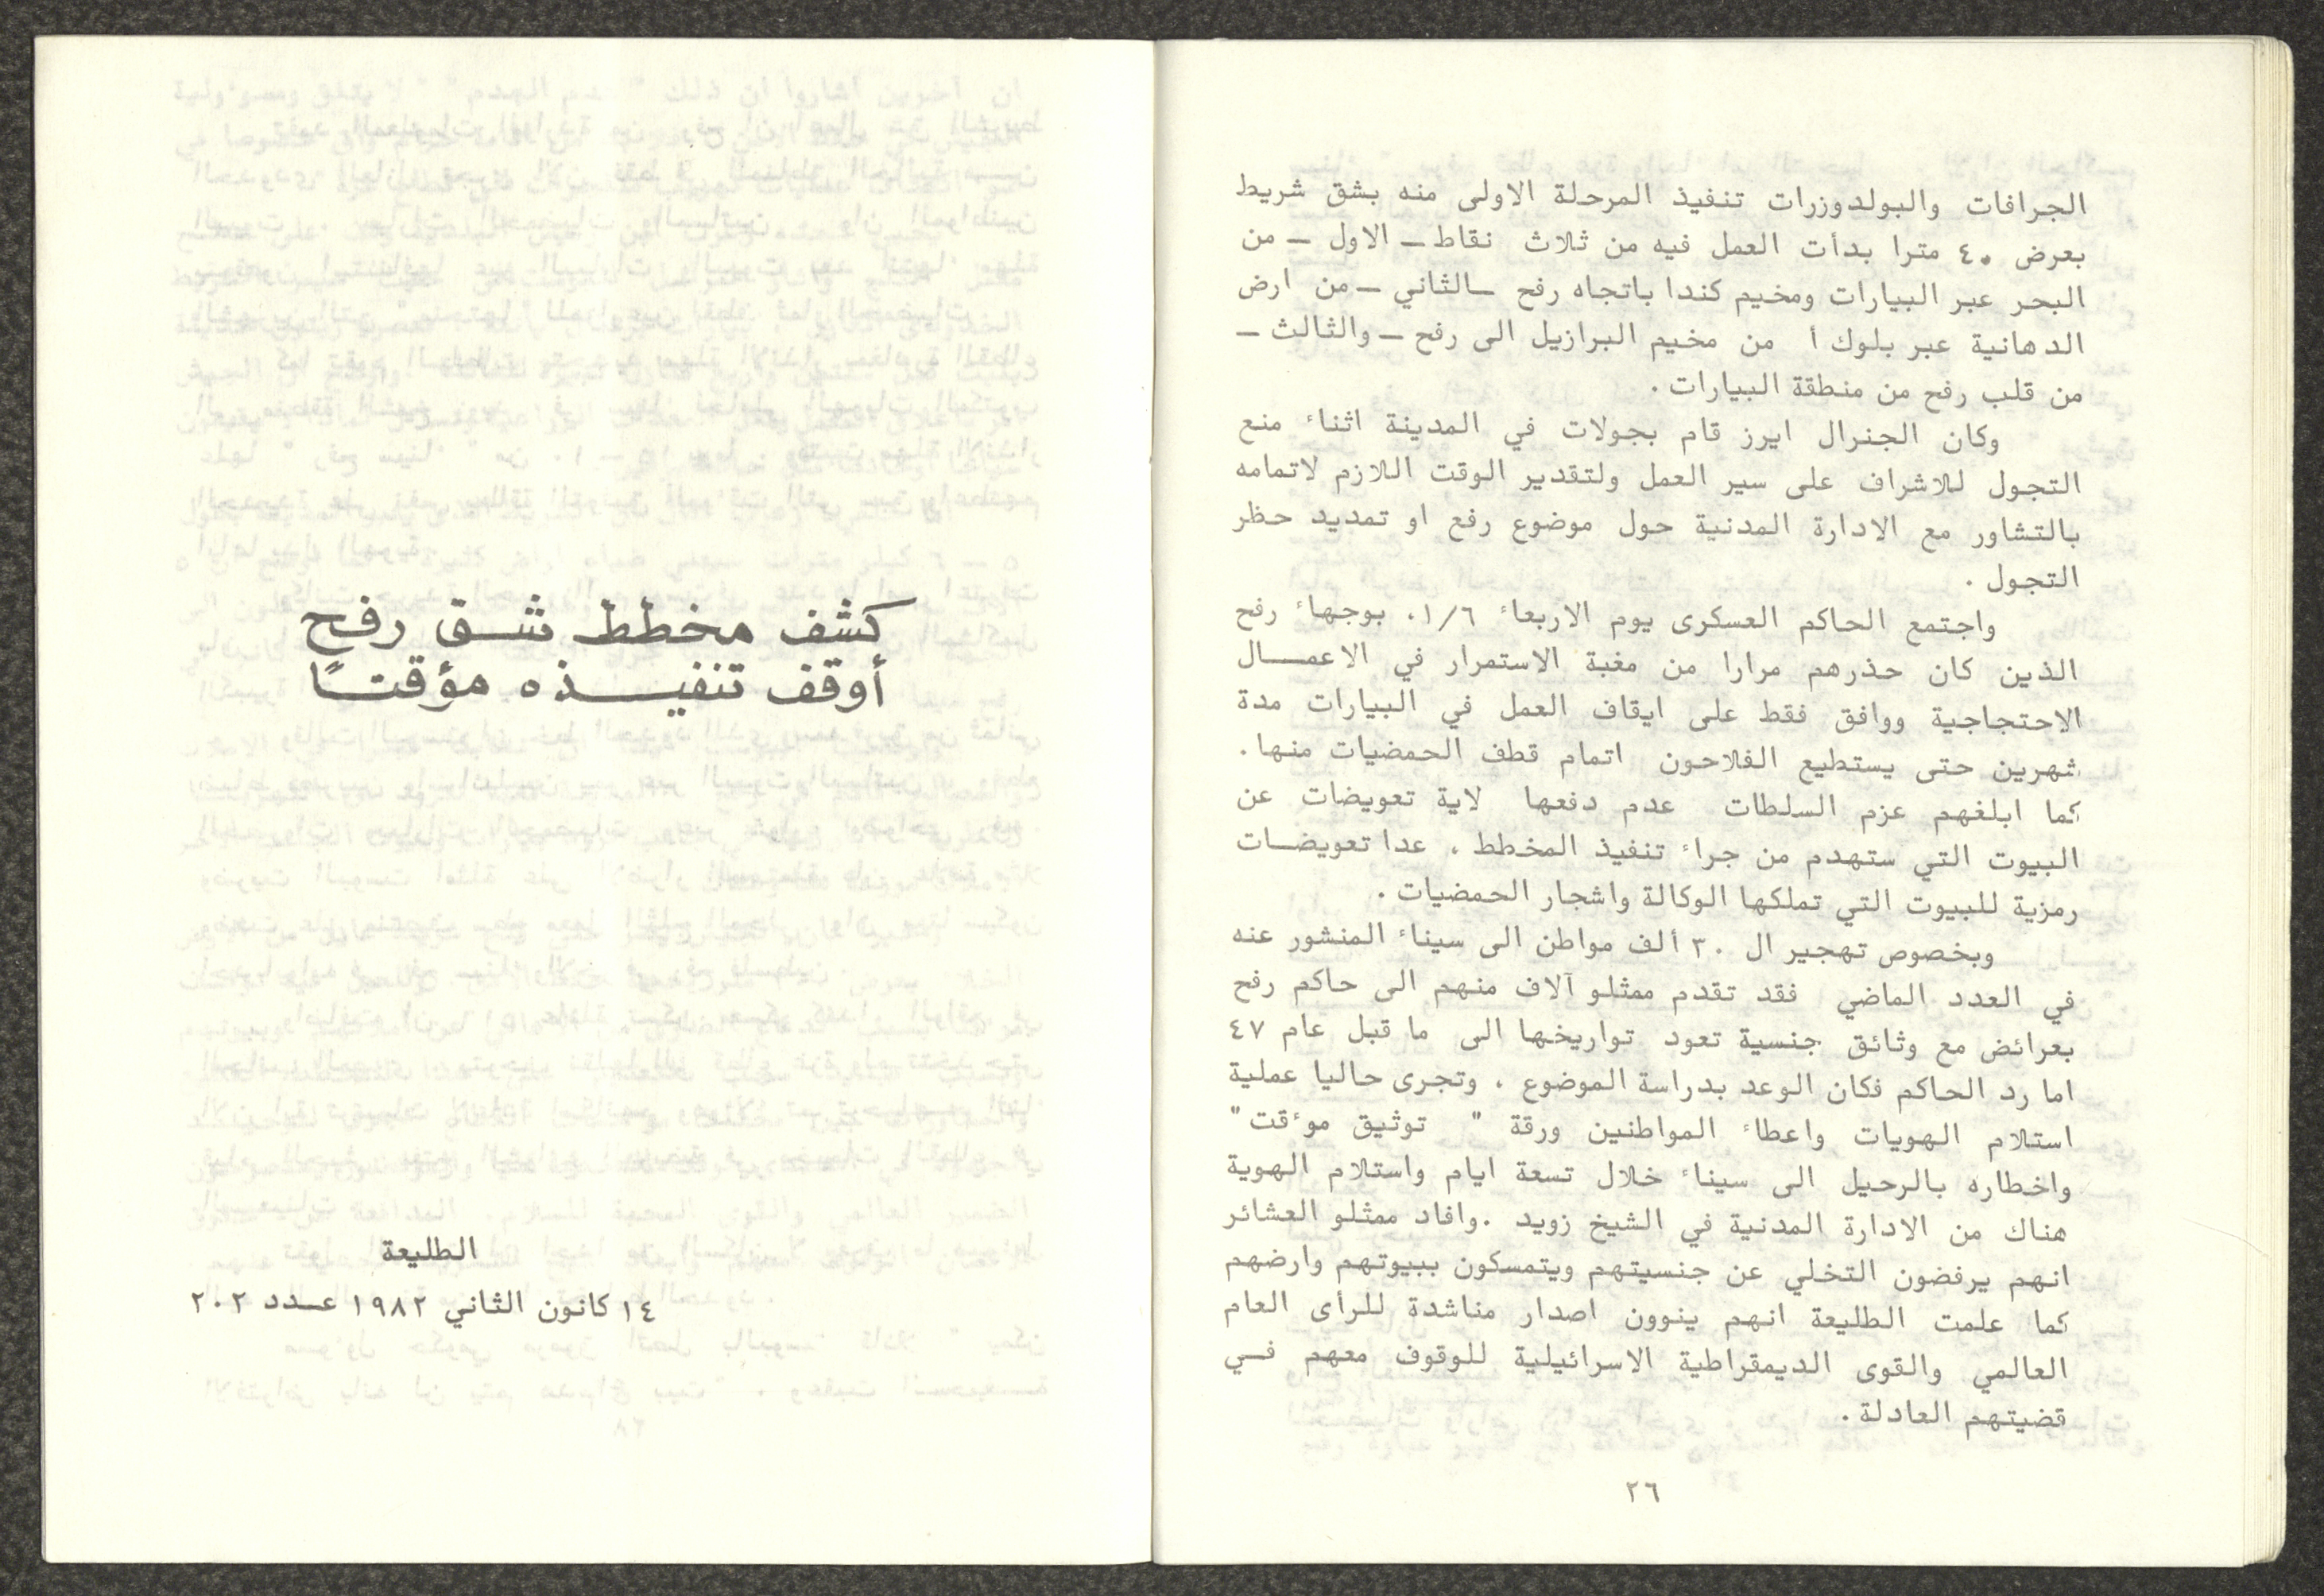 الجرافات والبولدوزرات تنفيذ المرحلة الاولى منه بشق شريط
بعرض ٤٠ مترا بدأت العمل فيه من ثلاث نقاط ــ الاول ــ من
البحر عبر البيارات ومخيم كندا باتجاه رفح ــ الثاني ــ من ارض
الدهانية عبر بلوك أ من مخيم البرازيل الى رفح ــ والثالث ــ
من قلب رفح من منطقة البيارات .
وكان الجنرال ايرز قام بجولات في المدينة اثناء منع
التجول للاشراف على سير العمل ولتقدير الوقت اللازم لاتمامه
بالتشاور مع الادارة المدنية حول موضوع رفع او تمديد حظر
التجول .
واجتمع الحاكم العسكرى يوم الاربعاء ١/٦، بوجهاء رفح
الذين كان حذرهم مرارا من مغبة الاستمرار في الاعمـــال
الاحتجاجية ووافق فقط على ايقاف العمل في البيارات مدة
شهرين حتى يستطيع الفلاحون اتمام قطف الحمضيات منها.
كما ابلغهم عزم السلطات عدم دفعها لاية تعويضات عن
البيوت التي ستهدم من جراء تنفيذ المخطط ، عدا تعويضــات
رمزية للبيوت التي تملكها الوكالة واشجار الحمضيات .
وبخصوص تهجير ال ٣٠ ألف مواطن الى سيناء المنشور عنه
في العدد الماضي فقد تقدم ممثلو آلاف منهم الى حاكم رفح
بعرائض مع وثائق جنسية تعود تواريخها الى ما قبل عام ٤٧
اما رد الحاكم فكان الوعد بدراسة الموضوع ، وتجرى حاليا عملية
استلام الهويات واعطاء المواطنين ورقة " توثيق موءقت"
واخطاره بالرحيل الى سيناء خلال تسعة ايام واستلام الهوية
هناك من الادارة المدنية في الشيخ زويد .وافاد ممثلو العشائر
انهم يرفضون التخلي عن جنسيتهم ويتمسكون ببيوتهم وارضهم
كما علمت الطليعة انهم ينوون اصدار مناشدة للرأى العام
العالمي والقوى الديمقراطية الاسرائيلية للوقوف معهم فــي
قضيتهم العادلة .
٢٦
كشف مخطط شــق رفح
أوقف تنفيـــذه مؤقتــًا
الطليعة
١٤ كانون الثاني ١٩٨٢ عــدد ٢٠٢